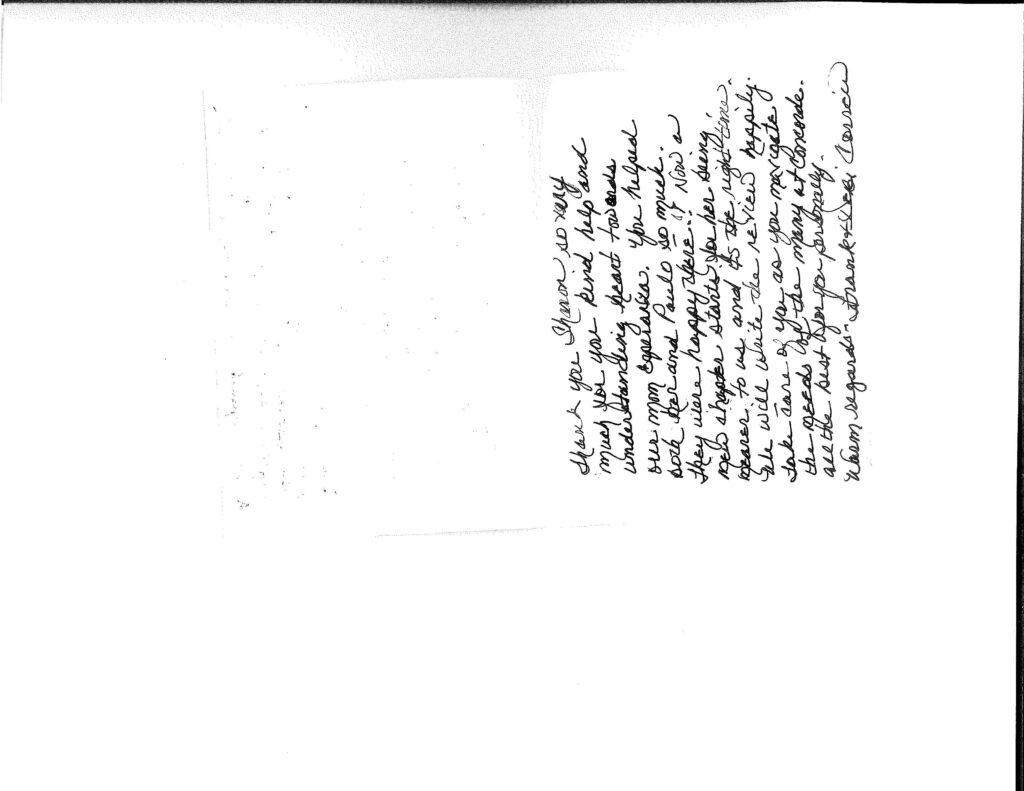 Thank you Sharon so very
much for you kind help and
understanding heart towards
our mom Esperanza. You helped
both her and Paulo so much.
they were happy there. Now a
new chapter starts for her being
nearer to us and it's the right time.
We will write the review happily.
take care of you as you navigate
the needs of the many at Concorde.
all the best for you personally.
Warm regards. Frank &